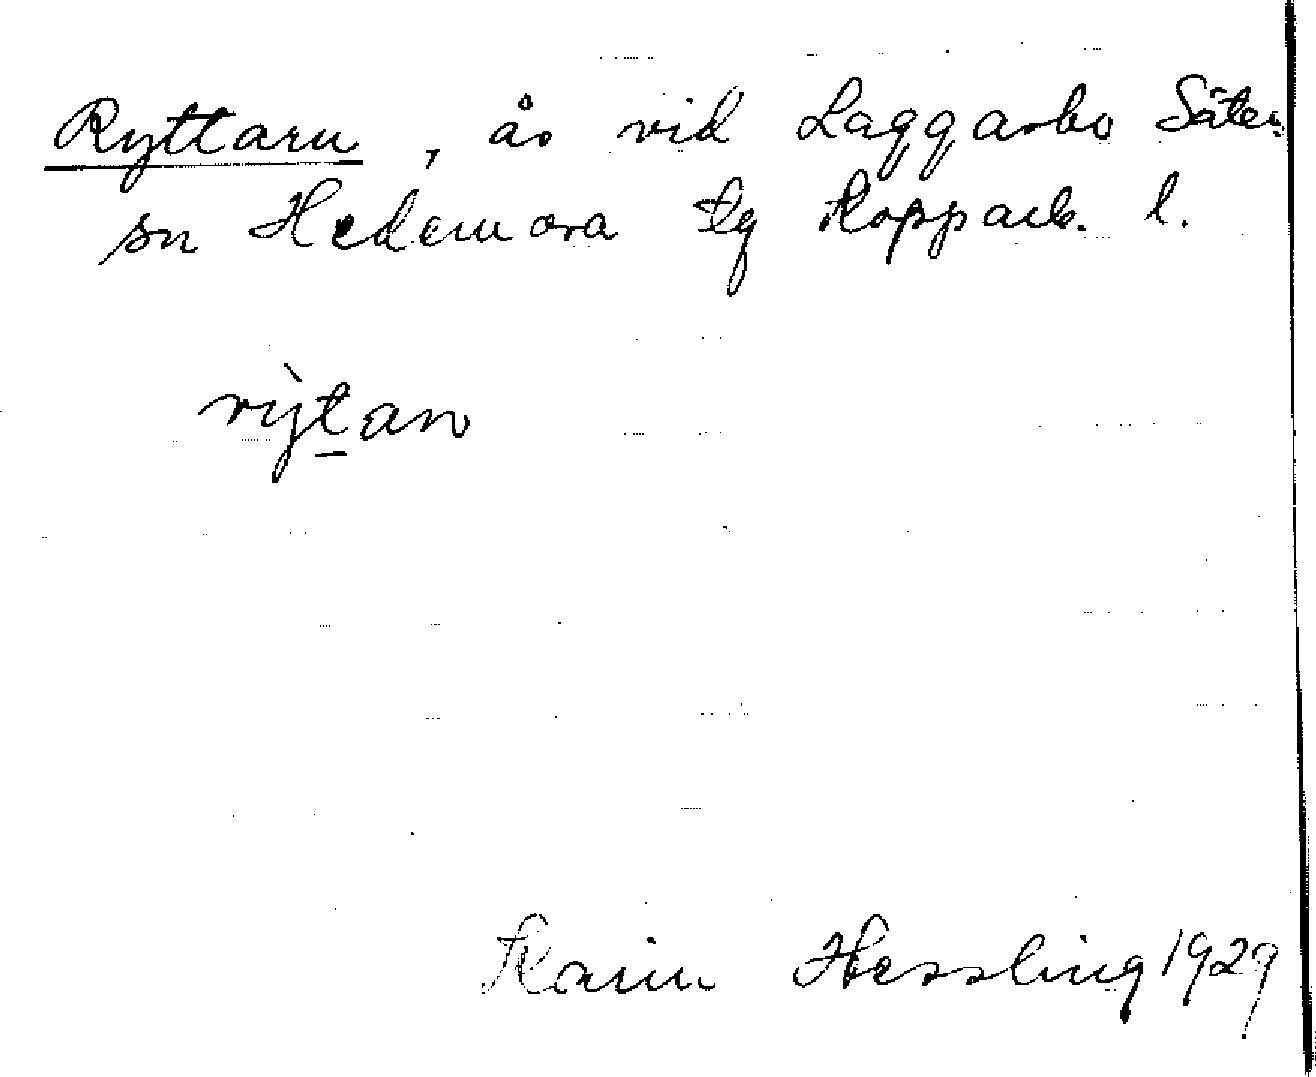 Ryttarn, ås vid Laggarbo Säter
sn Hedemora tg Kopparb. l.
rỳtan
Karin Hessling 1929